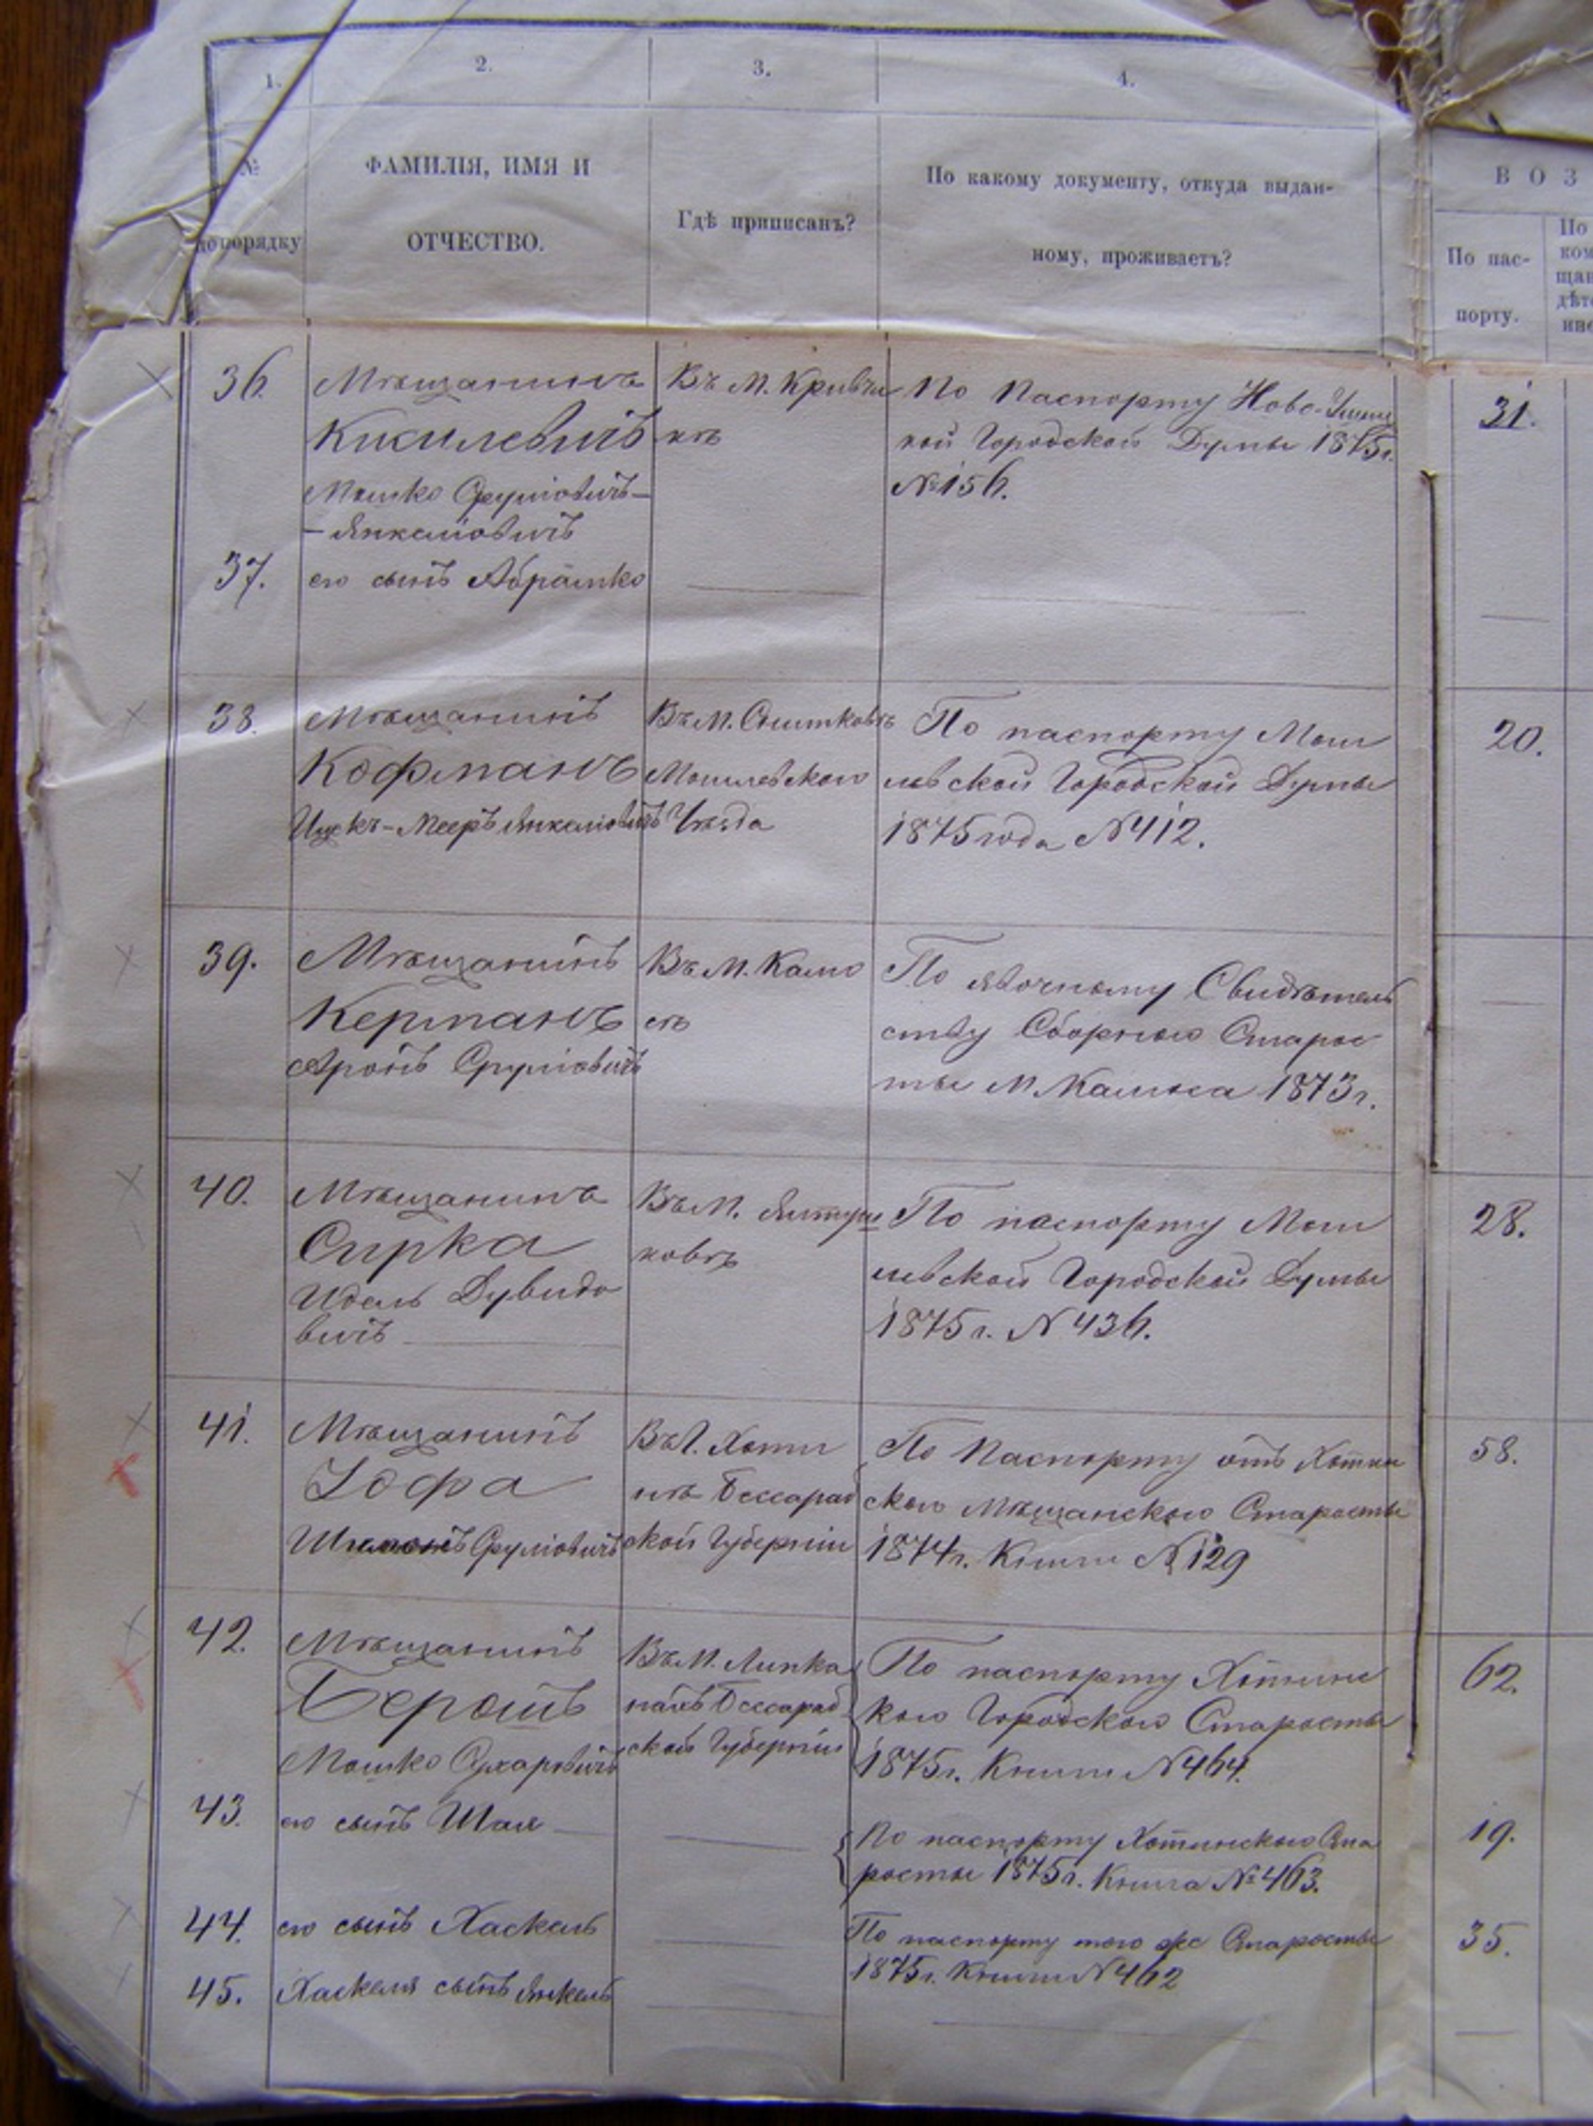 1.
2.
3.
4.
№
по порядку
ФАМИЛІЯ, ИМЯ И
ОТЧЕСТВО.
Гдѣ приписанъ?
По какому документу, откуда выдан-
ному, проживаетъ?
ВОЗ
По пас-
порту.
По
36.
Мѣщанинъ
Кисилевичъ
Мошко Сруліовичъ-
-Янкеліовичъ
Въ М. Кривчи
кѣ
По Паспорту Ново-Ушиц
кой Городской Думы 1875г.
№156.
31.
37.
его сынъ Абрамко
38.
Мѣщанинъ
Кофманъ
Ицекъ-Мееръ Янкеліовичъ
Въ М. Снитковѣ
Могилевского
Уѣзда
По паспорту Моги
левской Городской Думы
1875 года №412.
20.
39.
Мѣщанинъ
Керманъ
Аронъ Сруліовичъ
Въ М. Калю
сѣ
По явочному Свидѣтель
ству Сборного Старос
ты М. Калюса 1873г.
40.
Мѣщанинъ
Сирка
Идель Дувидо
вичъ
Въ М. Ялтуш
ковѣ
По паспорту Моги
левской Городской Думы
1875г. №436.
28.
41.
Мѣщанинъ
Іофа
Сруліовичъ
Въ Г. Хоти
нѣ Бессараб
ской Губерніи
По Паспорту отъ Хотин
ского Мѣщанского Старосты
1874г. Книги №129
58.
42.
Мѣщанинъ
Берошъ
Мошко Сухаровичъ
Въ М. Липка
нахъ Бессараб
ской Губерніи
По паспорту Хотинс
кого Городского Старосты
1875г. Книги №464.
62.
43.
его сынъ Шая
По паспорту Хотинского Ста
росты 1875г. Книга №463.
19.
44.
его сынъ Хаскель
По паспорту того же Старосты
1875г. Книги №462
35.
45.
Хаскеля сынъ Янкель